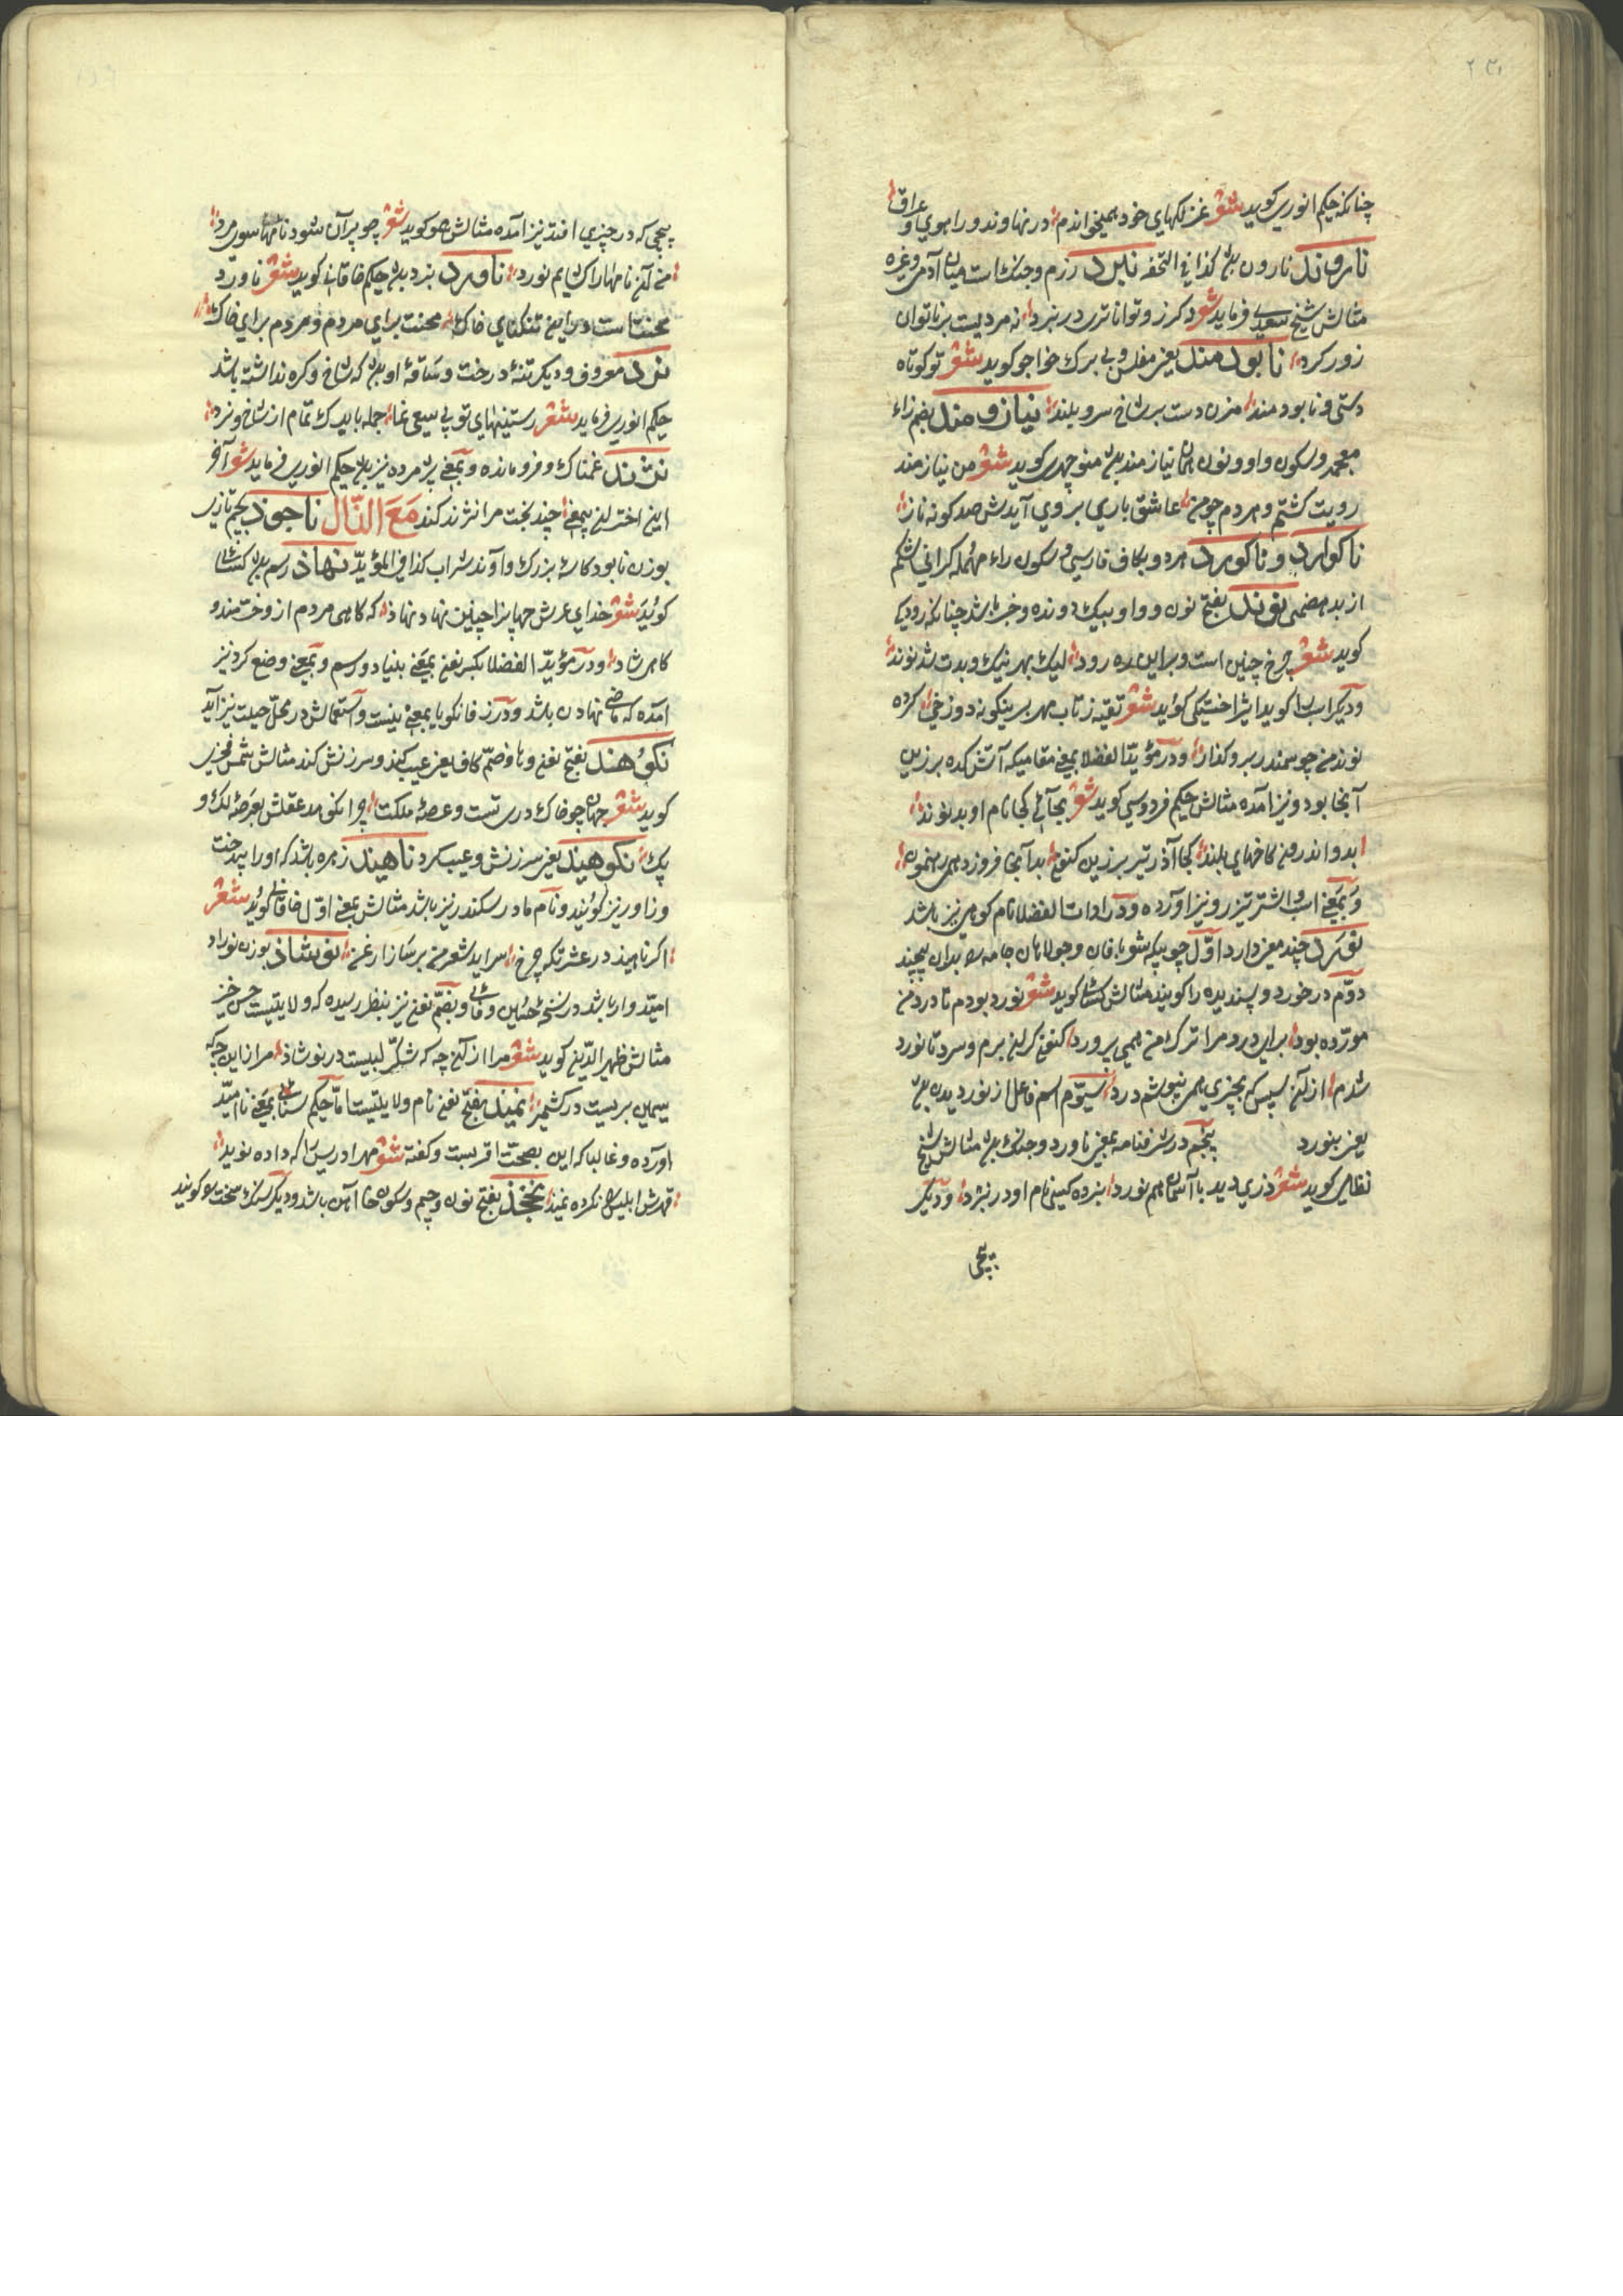 چنانکه حکیم انوری کوید شعر غزلکهای خود همیخواندم در نهاوند و راهوی و عراق
ناروند نارون باشد کذا فی التحفه نبرد رزم و جنک است میان آدمی و غیره
مثالش شیخ سعدی فرماید شعر دکر زو تواناتری در نبرد نه مردیست بر ناتوان
زور کرد نابودمند یعنی مفلس و بی برک خواجو کوید شعر تو کوتاه
دستی و نابودمند مزن دست بر شاخ سرو بلند نیازومند بضم زاء
معجمه و سکون واو و نون همان نیازمند باشد منوچهری کوید شعر من نیازمند
رویت کشتم و هر دم چو من عاشق باری بروی آیدش صد کونه ناز
ناکوارد و ناکورد هر دو بکاف فارسی و سکون راء مهمله کرانی شکم
از بدهضمی نوند بفتح نون و واو پیک دونده و خبر باشد چنانکه رودکی
کوید شعر چرخ چنین است و برین ره رود لیک بهر نیک و بدت شد نوند
و دیکر اسب را کوید اثیر اخسیکتی کوید شعر تفته ز تاب مهر بر ینکونه دوزخی کرده
نوند من چو سمندر برو کذار و در مؤید الفضلا بمعنی مقامیکه آتشکده برزین
آنجا بود و نیز آمده مثالش حکیم فردوسی کوید شعر بجائی کجا نام او بد نوند
بدو اندرون کاخهای بلند کجا آذر تیر برزین کنون بدآنجا فروزد همی رهنمون
و بمعنی اسب و اشتر تیزرو نیز آورده و در ادات الفضلا نام کوهی نیز باشد
نورد چند معنی دارد اول چوبیکه شوبافان و جولاهان جامه را بدان پیچند
دوم در خورد و پسندیده را کویند مثالش کسائی کوید شعر نورد بودم تا ورد من
مورد بود برای ورد مرا ترک من همی پرورد کنون کران برم و سرد تا نورد
شدم از آن سپس که بچیزی همی نپوشم درد سیوم اسم فاعل از نوردیدن باشد
یعنی بنورد پنجم در شرفنامه بمعنی ناورد و جنک باشد مثالش شیخ
نظامی کوید شعر دزی دید با آسمان هم نورد نبرده کسی نام او در نبرد و دیکر
پیچی
پیچی که در چیزی افتد نیز آمده مثالش هم کوید شعر چو پرآن شود نامها سوی مرد
من آن نامها را کشایم نورد ناورد نبرد باشد حکیم خاقانی کوید شعر ناورد
محنتاست درین تنکنای خاک محنت برای مردم و مردم برای خاک
نرد معروف و دیکر تنه درخت و ساقه او باشد که شاخ و کره نداشته باشد
حکیم انوری فرماید شعر رستنیهای تو بی سعی نما جمله با بیدک تمام از شاخ و نرد
نژند غمناک و فرو مانده و بمعنی پژمرده نیز باشد حکیم انوری فرماید شعر آخر
این اختران بی معنی چند بخت مرا نژند کند مع الذال ناجوذ بجیم تازی
بوزن نابود کاسه بزرک و آوند شراب کذا فی المؤید نهاذ رسم باشد کسائی
کوید شعر خدای عرش جهانرا چنین نهاد نهاذ که کاه مردم ازو خشمند و
کاه شاد و در مؤید الفضلا بکسر نون بمعنی بنیاد و رسم و بمعنی وضع کرد نیز
آمده که ماضی نهادن باشد و در زفانکویا بمعنی نیست و استعمالش در محل حیلت نیز آید
نکوهند بفتح نون و ها و ضم کاف یعنی عیب کند و سرزنش کند مثالش شمس فخری
کوید شعر جهان چو خاک درتست و عرصه ملکت چرا نکوهد عقلش بعرصه لک و
پک نکوهیند یعنی سرزنش و عیب کرد ناهیند زهره باشد که او را بیدخت
و زاور نیز کویند و نام مادر سکندر نیز باشد مثالش بمعنی اول خاقانی کوید شعر
اکر ناهید در عشرتکه چرخ سراید شعر من بر ساز ارغن نوشاذ بوزن نوراد
امیدوار باشد در نسخه حسین وفائی و بضم نون نیز بنظر رسیده که ولایتیست حسن خیز
مثالش ظهیر الدین کوید شعر مرا از آن چه که شکر لبیست در نوشاذ مرا زاین چه که
سیمین بریست در کشمیر نمیذ بفتح نون نام ولایتیست اما حکیم سنائی بمعنی ناامید
آورده و غالبا که این بصحت اقربست و کفته شعر مهر ادریس را که داده نوید
قهرش ابلیس را نکرده نمیذ نجخذ بفتح نون و جیم و سکون خا آهن باشد و دیکر سنک سخت را کویند